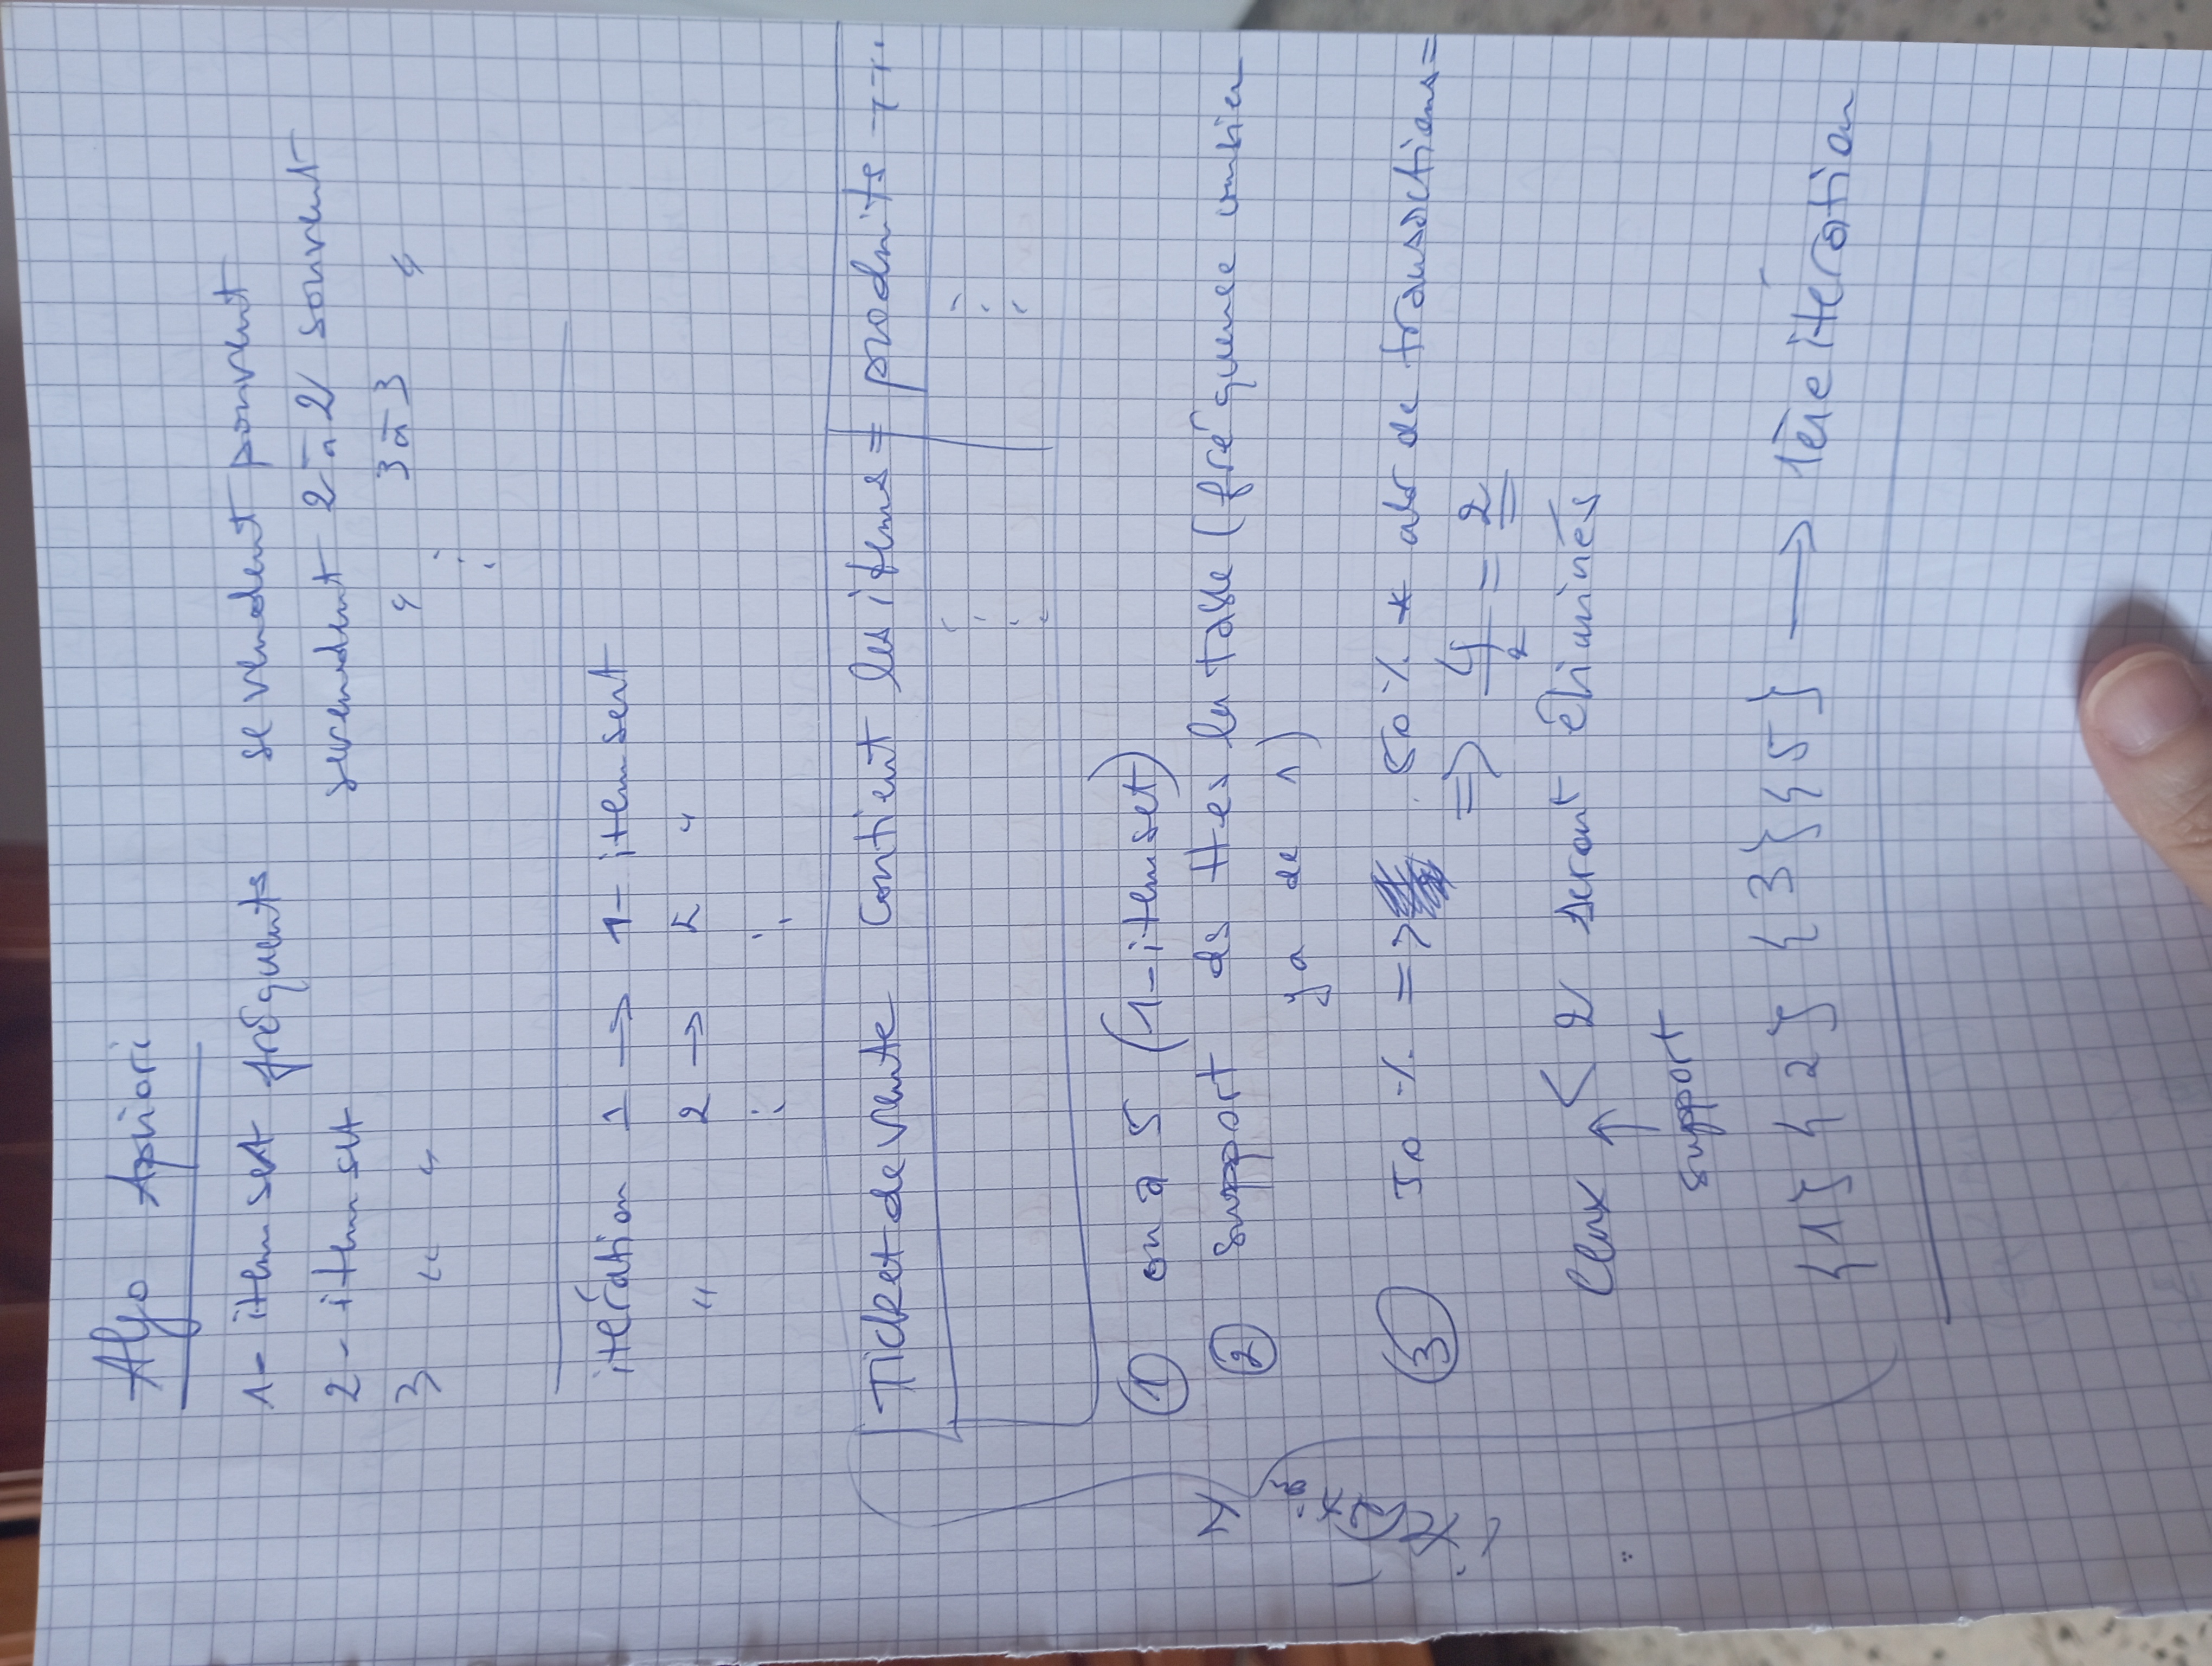 Algo Apriori
1- item set fréquents se vendent souvent
2- item set se vendent 2 à 2 souvent
3 " " " 3 à 3 "
iteŕation 1 → 1- item sert
" 2 → 2 "
Ticket de vente Contient les items = produits ...
① on a 5 (1-item set)
② support ds ttes la table (fréquence combien
ya de 1)
③ 50 % => 50 % * nbr de transactions =
=> 4/2 = 2
Ceux < 2 seront éliminés
↑
support
{1} {2} {3} {5} → 1ère itération
itération 1